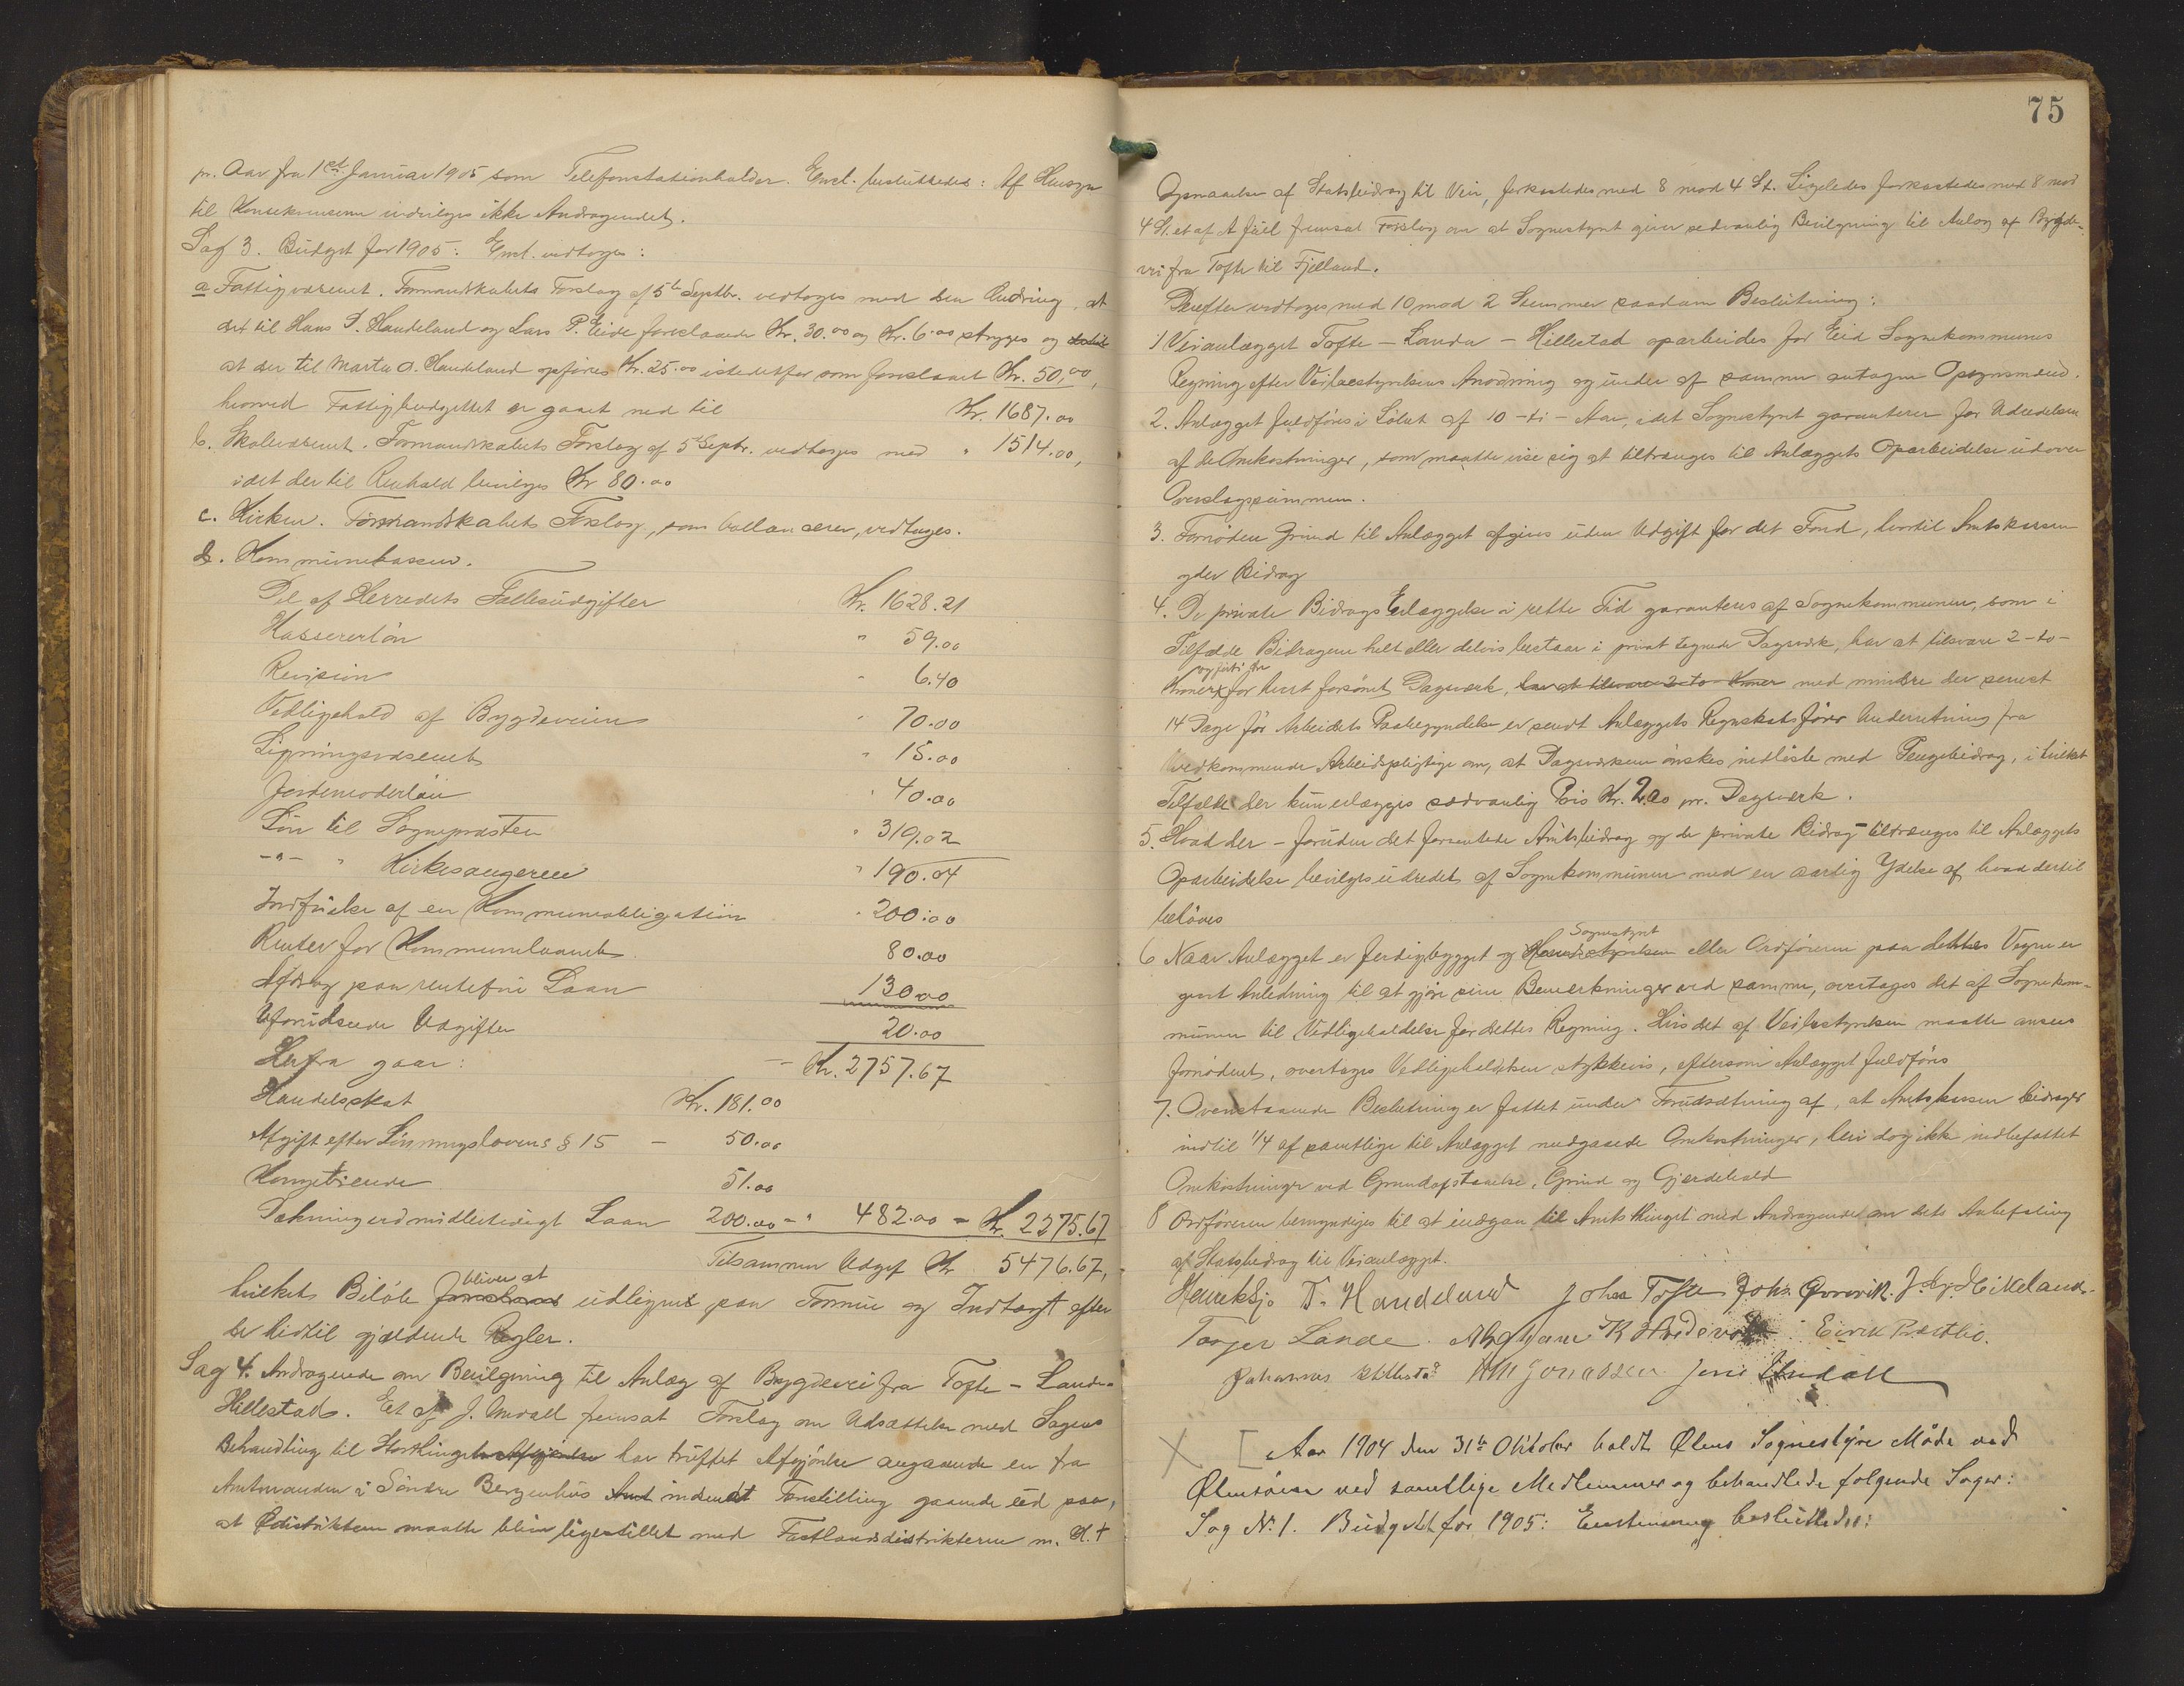 pr. Aar fra 1ste Januar 1905 som Telefonstationholder. Enst. besluttedes: Af Hensyn
til Konsekvensene indvilges ikke Andragendet.
Sag 3. Budget for 1905: Enst. vedtoges:
a Fattigvæsenet. Formandskabets Forslag af 5te Septbr. vedtoges med den Ændring, at
det til Hans S. Handeland og Lars P. Eide foreslaaede Kr. 30.00 og Kr. 6.00 stryges og
at der til Marta O. Handeland opføres Kr. 25.00 istedetfor som foreslaaet Kr. 50.00,
hvorved Fattigbudgettet er gaaet ned til Kr. 1687.00
b. Skolevæsenet. Formandskabets Forslag af 5 Septbr. vedtoges med " 1514.00,
idet der til Renhold bevilges Kr 80.00
c. Kirken. Formandskabets Forslag, som ballancerer, vedtages.
d. Kommunekassen.
Del af Herredets Fællesudgifter Kr. 1628.21
Kassererløn " 59.00
Revision " 6.40
Vedligehold af Bygdeveien " 70.00
Ligningsvæsenet " 15.00
Jordemoderløn " 40.00
Løn til Sognepræsten " 319.02
-"- " Kirkesangeren " 190.04
Indfrielse af en Kommuneobligation " 200.00
Renter for Kommunelaanet 80.00
Afdrag paa rentefrie Laan 130.00
Uforudseede Udgifter 20.00
Herfra gaar: - Kr. 2757.67
Handelsskat Kr. 181.00
Afgift efter Lønningslovens § 15 - 50.00
Kongetiende 51.00
Dækning ved midlertidigt Laan 200.00 - " 482.00 = Kr. 2275.67
Tilsammen Udgif Kr 5476.67,
hvilket Beløb bliver at udligne paa Formue og Indtægt efter
de hidtil gjældende Regler.
Sag 4. Andragende om Bevilgning til Anlæg af Bygdevei fra Tofte - Landa -
Hillestad. Et af J. Undall fremsat Forslag om Udsættelse med Sagens
Behandling til Storthinget har truffet Afgjørelse angaaende en fra
Amtmanden i Søndre Bergenhus Amt indsendt Forestilling gaaende ud paa,
at Ødistrikten maatte blive ligestillet med Fastlandsdistrikterne m. H. t
75
Opnaaelse af Statsbidrag til Vei, forkastedes med 8 mod 4 St. Ligeledes forkastedes med 8 mod
4 St. et af A Juel fremsat Forslag om at Sognestyret giver sedvanlig Bevilgning til Anlæg af Bygde-
vei fra Tofte til Fjelland.
Derefter vedtoges med 10 mod 2 Stemmer saadan Beslutning:
1 Veianlægget Tofte - Landa - Hillestad oparbeides for Eid Sognekommunes
Regning efter Veibestyrelsens Anordning og under af samme antagen Opsynsmænd.
2. Anlægget fuldføres i Løbet af 10 - ti - Aar, idet Sognestyret garanterer for Udredelsen
af de Omkostninger, som maatte vise sig at tiltrænges til Anlæggets Oparbeidelse udover
Overslagssummen.
3. Fornøden Grund til Anlægget afgives uden Udgift for det Fond, hvortil Amtskassen
yder Bidrag
4. De private Bidrags Erlæggelse i rette Tid garanteres af Sognekommunen, som i
Tilfælde Bidragene helt eller delvis bestaar i privat tegnede Dagsværk, har at tilsvare 2 - to -
Kroner for hvert forsømt Dagsværk, har at tilsvare 2 to Kroner med mindre der senest
14 Dage før Arbeidets Paabegyndelse er sendt Anlæggets Regnskabsfører Underretning fra
vedkommende Arbeidspligtige om, at Dagsværkene ønskes indløste med Pengebidrag, i hvilket
Tilfælde der kun erlægges sædvanlig Pris Kr. 2.00 pr. Dagsværk.
5. Hvad der - foruden det forventede Amtsbidrag og de private Bidrag - tiltrænges til Anlæggets
Oparbeidelse bevilges udredet af Sognekommunen med en aarlig Ydelse af hvad dertil
behøves
6 Naar Anlægget er ferdigbygget og Sognestyret eller Ordføreren paa dettes Vegne er
givet Anledning til at gjøre sine Bemerkninger ved samme, overtages det af Sognekom-
munen til Vedligeholdelse for dettes Regning. Hvis det af Veibestyrelsen maatte ansees
fornødent, overtages Vedligeholdelsen stykkevis, eftersom Anlægget fuldføres
7. Ovenstaaende Beslutning er fattet under Forudsætning af, at Amtskassen bidrager
indtil 1/4 af samtlige til Anlægget medgaaede Omkostninger, heri dog ikke indbefattet
Omkostninger ved Grundafstaaelse, Grind og Gjerdehold
8 Ordføreren bemyndiges til at indgaa til Amtsthinget med Andragende om dets Anbefaling
af Statsbidrag til Veianlægget.
T. Handeland Johan Tofte Johs. Øvrevik. Mikeland.
Torger Landa. Eirik Prestlio.
Johannes Hillestad Jonassen Jens Undall
X [ Aar 1904 den 31te Oktober holdt Ølens Sognestyre Møde ved
Ølensøen ved samtlige Medlemmer og behandlede følgende Sager:
Sag No. 1. Budgetet for 1905: Enstemmig besluttedes: